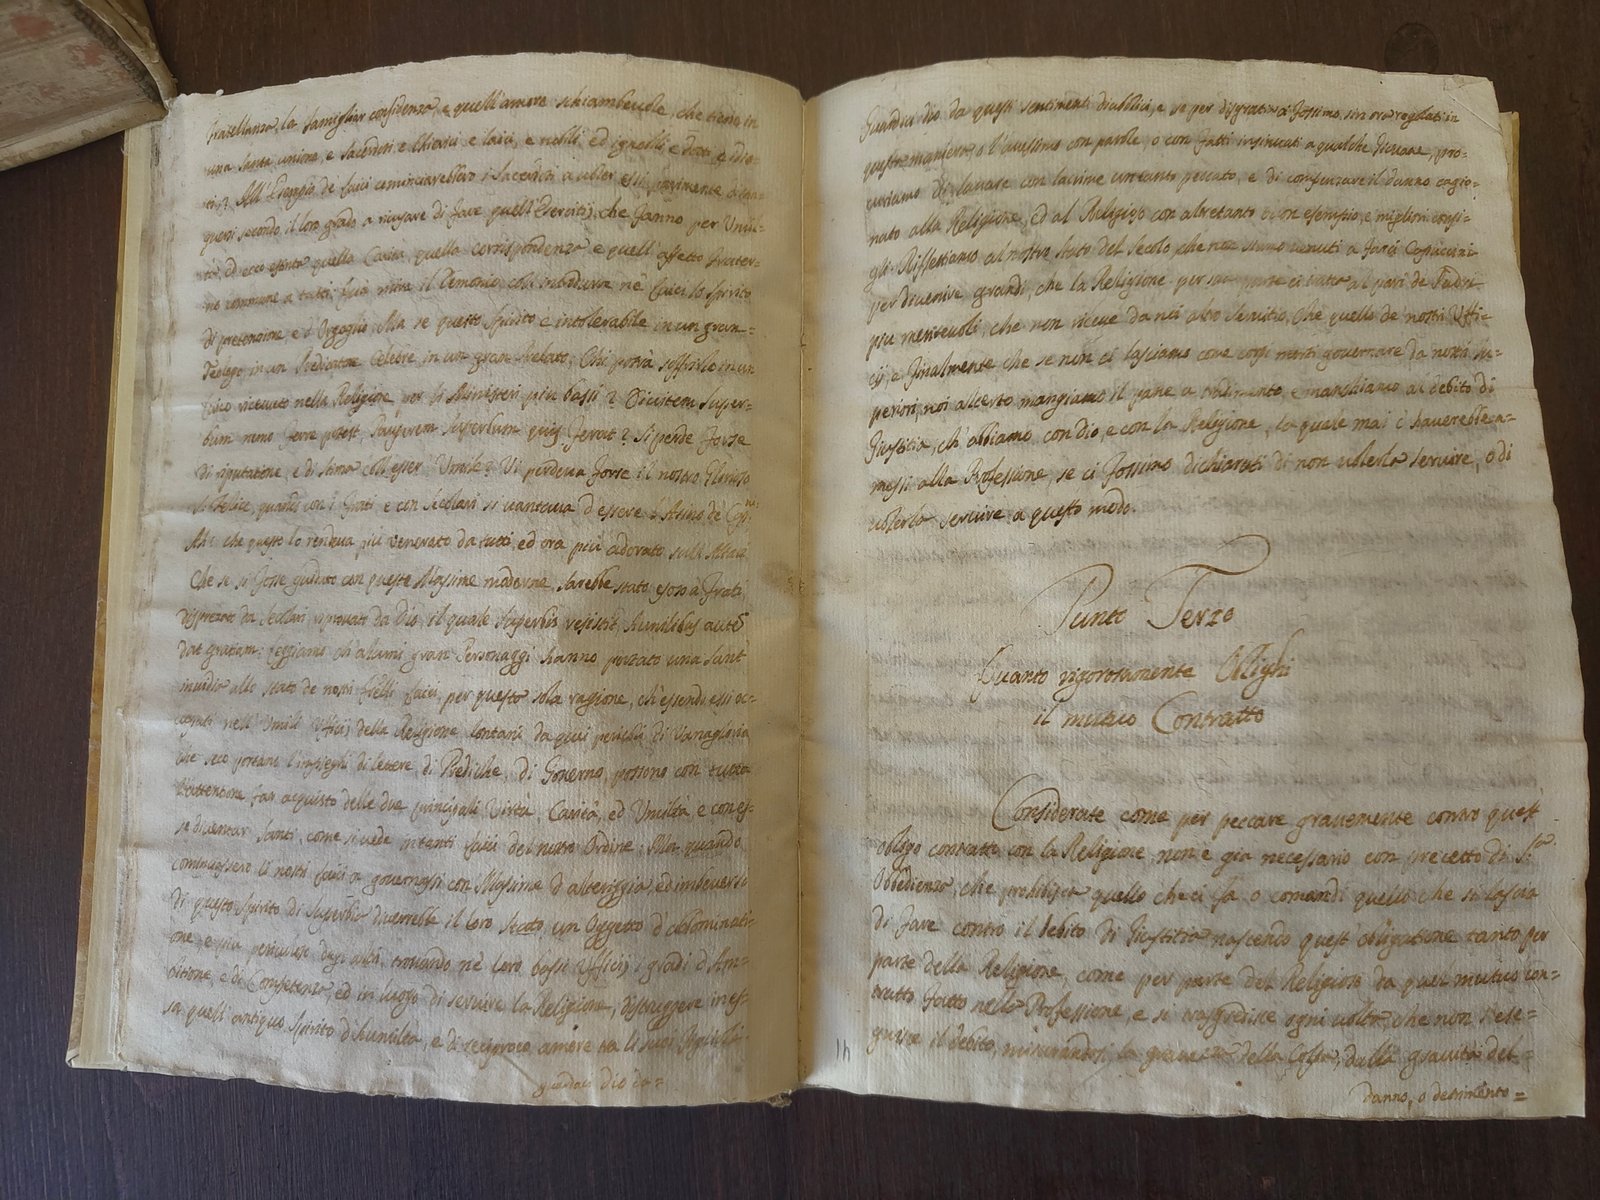 fratellanza, la famigliar confidenza, e quell'amore schiambeuole, che tiene in
una santa unione, e Sacerdoti, e Chierici, e laici, e nobili, ed ignobili, e dotti, e idio-
ti. All'Esempio de laici cominciarebbero i Sacerdoti a uoler essi parimente
quesi secondo il loro grado a ricusare di fare quelli Esercitij, che fanno per Umil-
tà, ed ecco estinta quella Carità, quella corrispondenza, e quell'affetto frater-
no commune a tutti, se il Demonio ne laici lo Spirito
di pretenzione, e d'Orgoglio. Ma se questo Spirito è intolerabile in un gran
Teologo in un Predicatore Celebre in un gran Prelato, Chi potrà soffrirlo in un
laico riceuuto nella Religione per li Ministeri più bassi? Diuitem super-
bum nemo ferre potest, Pauperem superbum quis ferat? Si perde forse
di riputatione, e di stima coll'esser Umile? Vi perdeua forse il nostro Glorioso
S. Felice, quando con i Frati, e con Secolari si uantaua d'essere l'Asino de Capni
Ah, che questo lo rendeua più venerato da tutti, ed ora più adorato sull'Altari
Che se si fosse guidato con queste Massime moderne, sarebbe stato esoso a Frati,
disprezzato da Secolari, riprouato da Dio, il quale superbis resistit, humilibus autem
dat gratiam. leggiamo ch'alcuni gran Personaggi hanno portato una sant'
inuidia allo stato de nostri fratelli laici, per questa sola ragione, ch'essendo essi oc-
cupati nell'Umili Uffici della Religione lontani da quei pericoli di Vanagloria
che seco portano l'impieghi di lettere, di Prediche, di Gouerno, possono con tutta
l'attentione far acquisto delle due principali Virtù, Carità, ed Umiltà, e con es-
se diuentar Santi, come si uede in tanti laici del nostro Ordine. Ma quando
cominciassero li nostri laici a gouernarsi con Massime d'alteriggia, ed imbeuersi
di questo Spirito di Superbia diuerrebbe il loro stato un Oggetto d'abbominati-
one, e più pericoloso degl'altri, trouando ne loro bassi Ufficij i gradi d'Am-
bitione, e di Competenza, ed in luogo di seruire la Religione, distruggere in es-
sa quell'antiquo Spirito d'humiltà, e di reciproco amore tra li suoi
guardaci Dio da=
Guardici Dio da questi sentimenti diabolici, e se per disgratia ci fossimo sin ora regolati in
questa maniera, o l'auessimo con parole, o con fatti insinuati a qualche Giouane, pro-
curiamo di lauare con lacrime un tanto peccato, e di compensare il danno cagio-
nato alla Religione, ed al Religioso con altretanto buon esempio, e migliori consi-
gli. Riflettiamo al nostro stato del secolo, che non siamo uenuti a farci Capuccini
per diuenire grandi, che la Religione per sua parte ci tratta al pari de Padri
più meriteuoli, che non riceue da noi altro Seruitio, che quello de nostri Uffi-
cij, e finalmente che se non ci lasciamo come corpi morti gouernare da nostri Su-
periori, noi al certo mangiamo il pane a tradimento, e manchiamo al debito di
Giustitia, ch'abbiamo con Dio, e con la Religione, la quale mai ci hauerebbe am-
messi alla Professione, se ci fossimo dichiarati di non uolerla seruire, o di
uolerla seruire a questo modo.
Punto Terzo
Quanto rigorosamente Oblighi
il mutuo Contratto
Considerate come per peccare grauemente contro quest'
obligo contratto con la Religione, non è già necessario con precetto di S.ta
Obbedienza, che prohibisca quello che ci fa, o comandi quello, che si lascia
di fare contro il debito di Giustitia, nascendo quest'obligatione tanto per
parte della Religione, come per parte del Religioso da quel mutuo con-
tratto fatto nella Professione, e si trasgredisce ogni uolta, che non s'ese-
guisce il debito, misurandosi la grauezza della Colpa, dalla grauità del
danno, o detrimento=
14